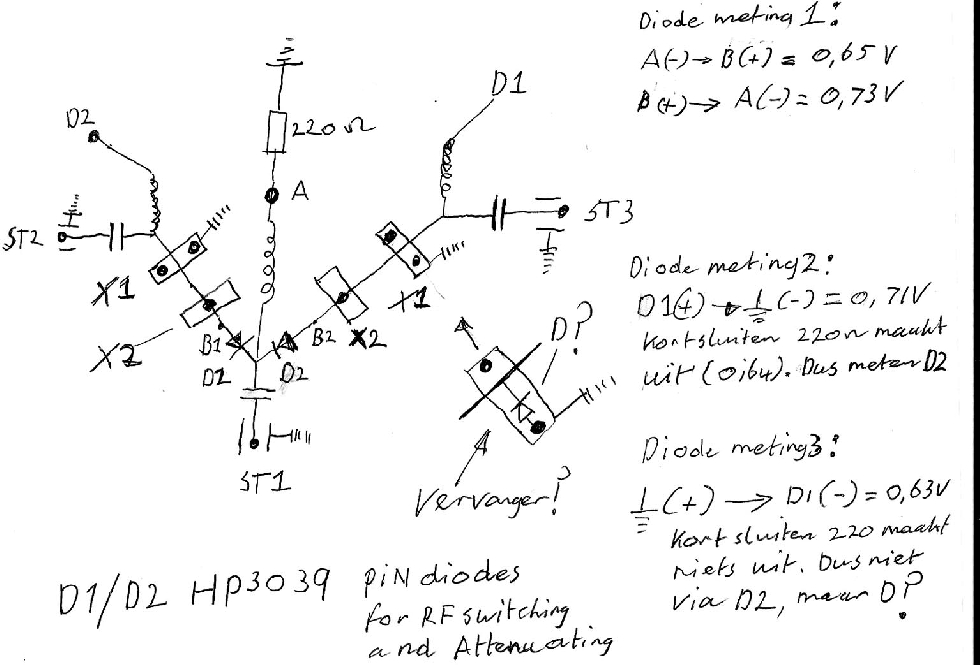 Diode meting 1:
A(-)→ B(+) = 0,65 V
B(+)→ A(-) = 0,73V
D2
D1
220Ω
A
ST2
ST3
X1
X1
X2
B1
B2
X2
D2
D2
D?
ST1
Vervanger!?
Diode meting 2:
D1(+) → (-) = 0,71V
Kortsluiten 220Ω maakt
uit (0,64). Dus meten D2
Diode meting3:
(+) → D1(-) = 0,63V
Kortsluiten 220 maakt
niets uit. Dus niet
via D2, maar D?
D1/D2 HP3039 PiN diodes
for RF switching
and Attenuating